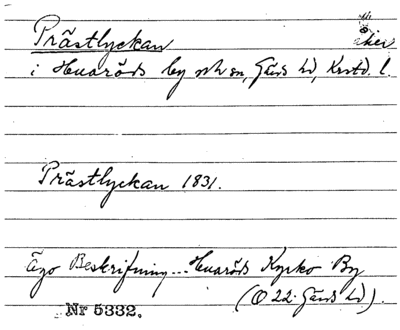 Prästlyckan
åker
i Huaröds by o sn, Gärds hd, Krstd. l.
Prästlyckan 1831.
Ägo Beskrifning... Huaröds Kyrko By
(O 22. Gärds hd).
Nr 5332.